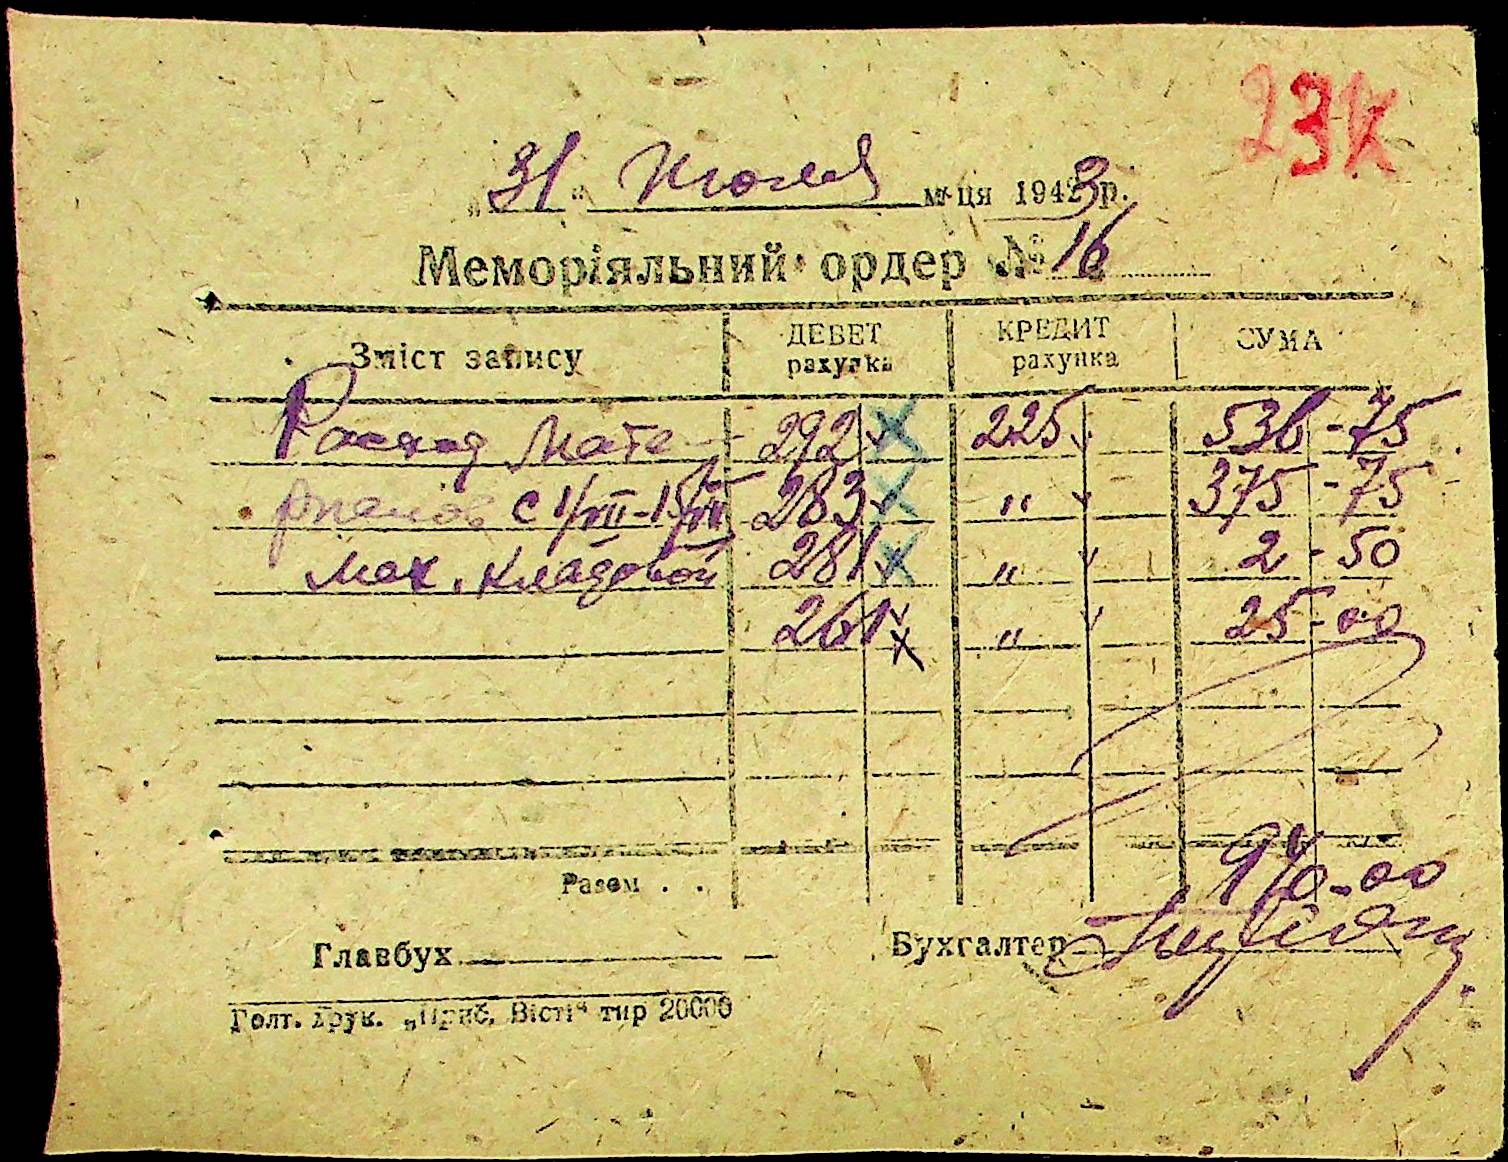 23к
„31“ Июля м-ця 1943 р.
Меморіяльний ордер № 16
Зміст запису ДЕБЕТ рахунка КРЕДИТ рахунка СУМА
Расход Мате- 292 225 536-75
риалов с 1/VII-15/VII 283 „ 375-75
Мех. кладовой 281 „ 2-50
261 „ 25-00
Разом . . 940-00
Главбух Бухгалтер
Голт. друк. „Приб. Вісті“ тир 20000